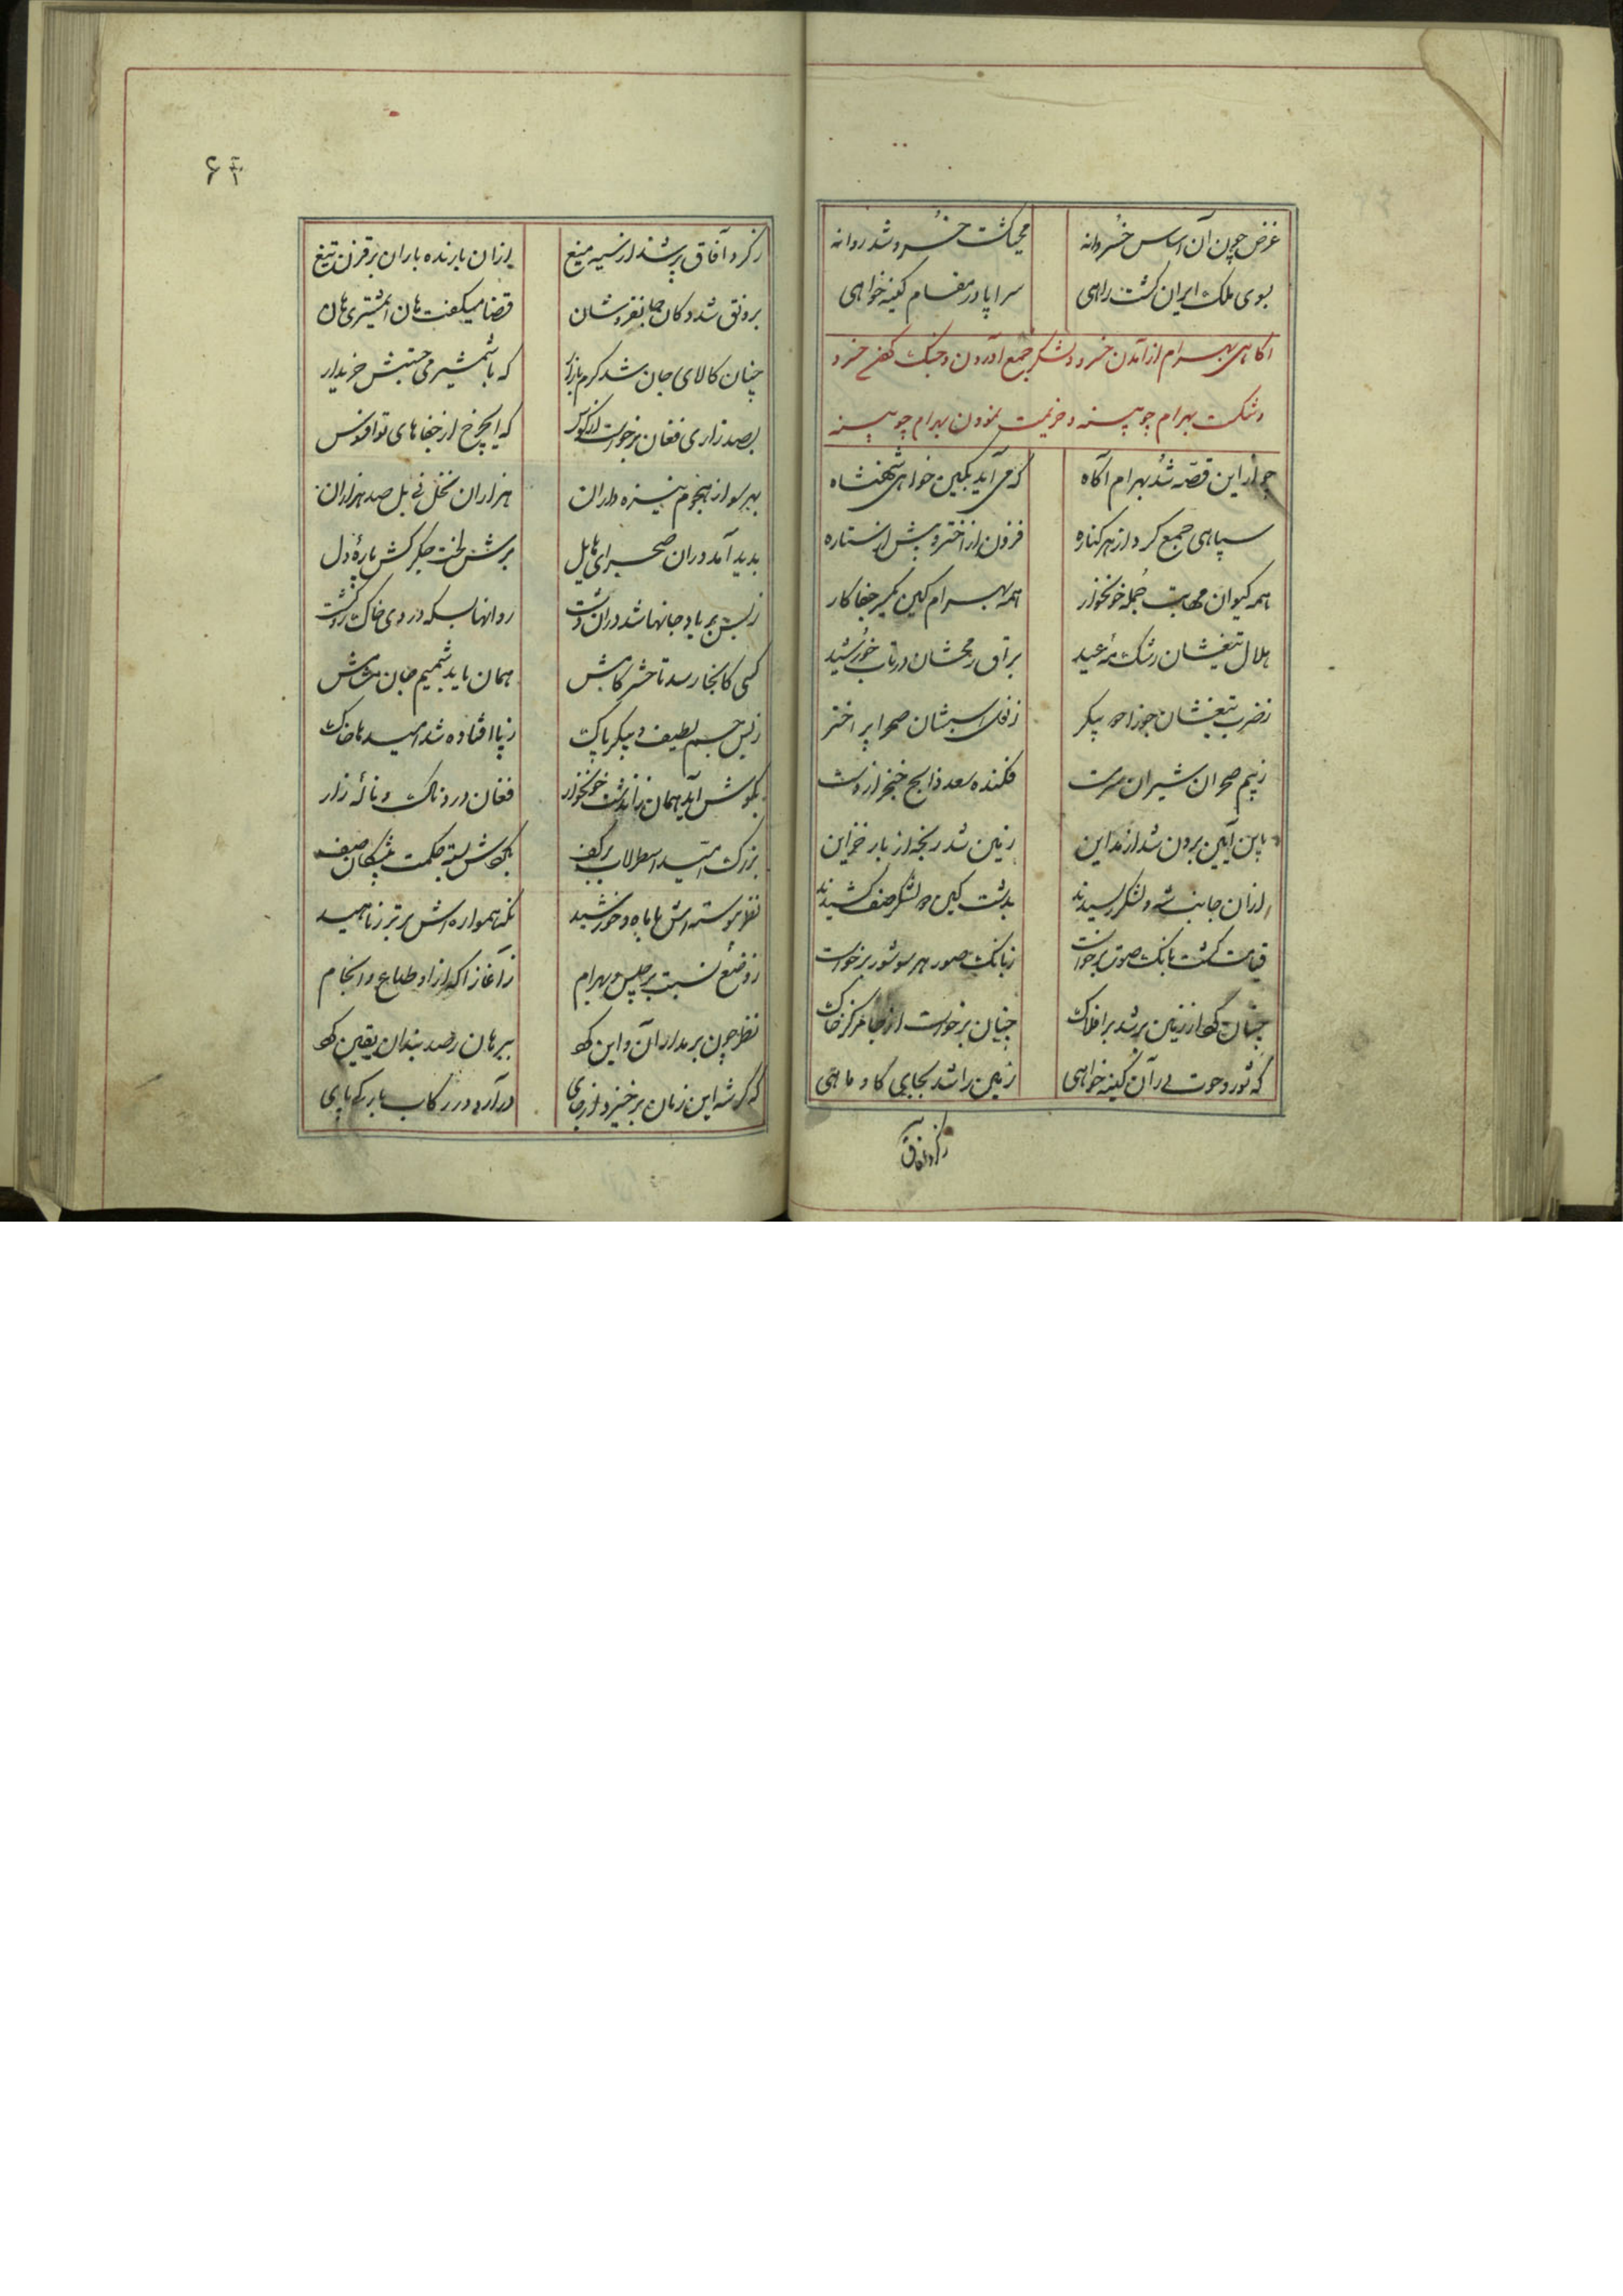 غرض چون آن اساس خسروانه مهیا گشت خسرو شد روانه
بسوی ملک ایران گشت راهی سراپا در مقام کینه خواهی
اکاهی بهرام از آمدن خسرو و لشکر جمع آوردن و جنک خسرو
و شکست بهرام چوبینه و هزیمت نمودن بهرام چوبینه
چو از این قصه شد بهرام آگاه که می آید بکین خواهی شهنشاه
سپاهی جمع کرد از هر کناره فزون از اختر و بیش از ستاره
همه کیوان مهابت جمله خونخوار همه بهرام کین جفا کار
هلال تیغشان رشک مه عید براق رخششان در تاب خورشید
ز ضرب تیغشان جوزا دو پیکر ز نعل اسبشان صحرا پر اختر
ز بیم شیران سرمست فکنده سعد ذابح خنجر از دست
باین آیین برون شد از مداین زمین شد رنجه از بار خزاین
ازان جانب شه و لشکر رسیدند بدشت کین دو لشکر صف کشیدند
قیامت گشت بانک صور برخواست ز بانک صور هر سو شور برخواست
چنان از زمین بر شد بر افلاک چنان برخواست از جا مرکز خاک
که ثور و حوت در آن کینه خواهی زمین را شد بجای کاو و ماهی
ز کرد آفاق
ز کرد آفاق پر شد از سیه میغ ازان بارنده باران برق زن تیغ
برونق شد دکان جانفروشان قضا میکفت هان ای مشتری هان
چنان کالای جان شد کرم بازار که با شمشیر می جستش خریدار
بصد زاری فغان برخواست از کوس که ایچرخ از جفاهای تو افسوس
بهر سو از هجوم نیزه داران هزاران نخل نی بل صد هزاران
پدید آمد در آن صحرای هایل برش لخت جگر کش پارهٔ دل
ز بس بر باد جانها شد در آن دشت روانها بسکه در روی خاک گشت
کسی کانجا رسد تا حشر کامش همان یابد شمیم جان مشامش
ز بس جسم لطیف و پیکر پاک ز پا افتاده شد آمیخته با خاک
بگوش آید همان زان دشت خونخوار فغان دردناک و نالهٔ زار
بزرک امید اسطرلاب بر کف بکف
نظر پیوسته اش با ماه و خورشید نگه همواره اش بر تیر و ناهید
ز وضع نسبت برجیس و بهرام ز آغاز آگه از اوضاع و انجام
نظر چون بر مدار آن و این کرد ببرهان رصد بندان یقین کرد
که گر شه این زمان برخیزد از جای در آرد در رکاب بارکی پای